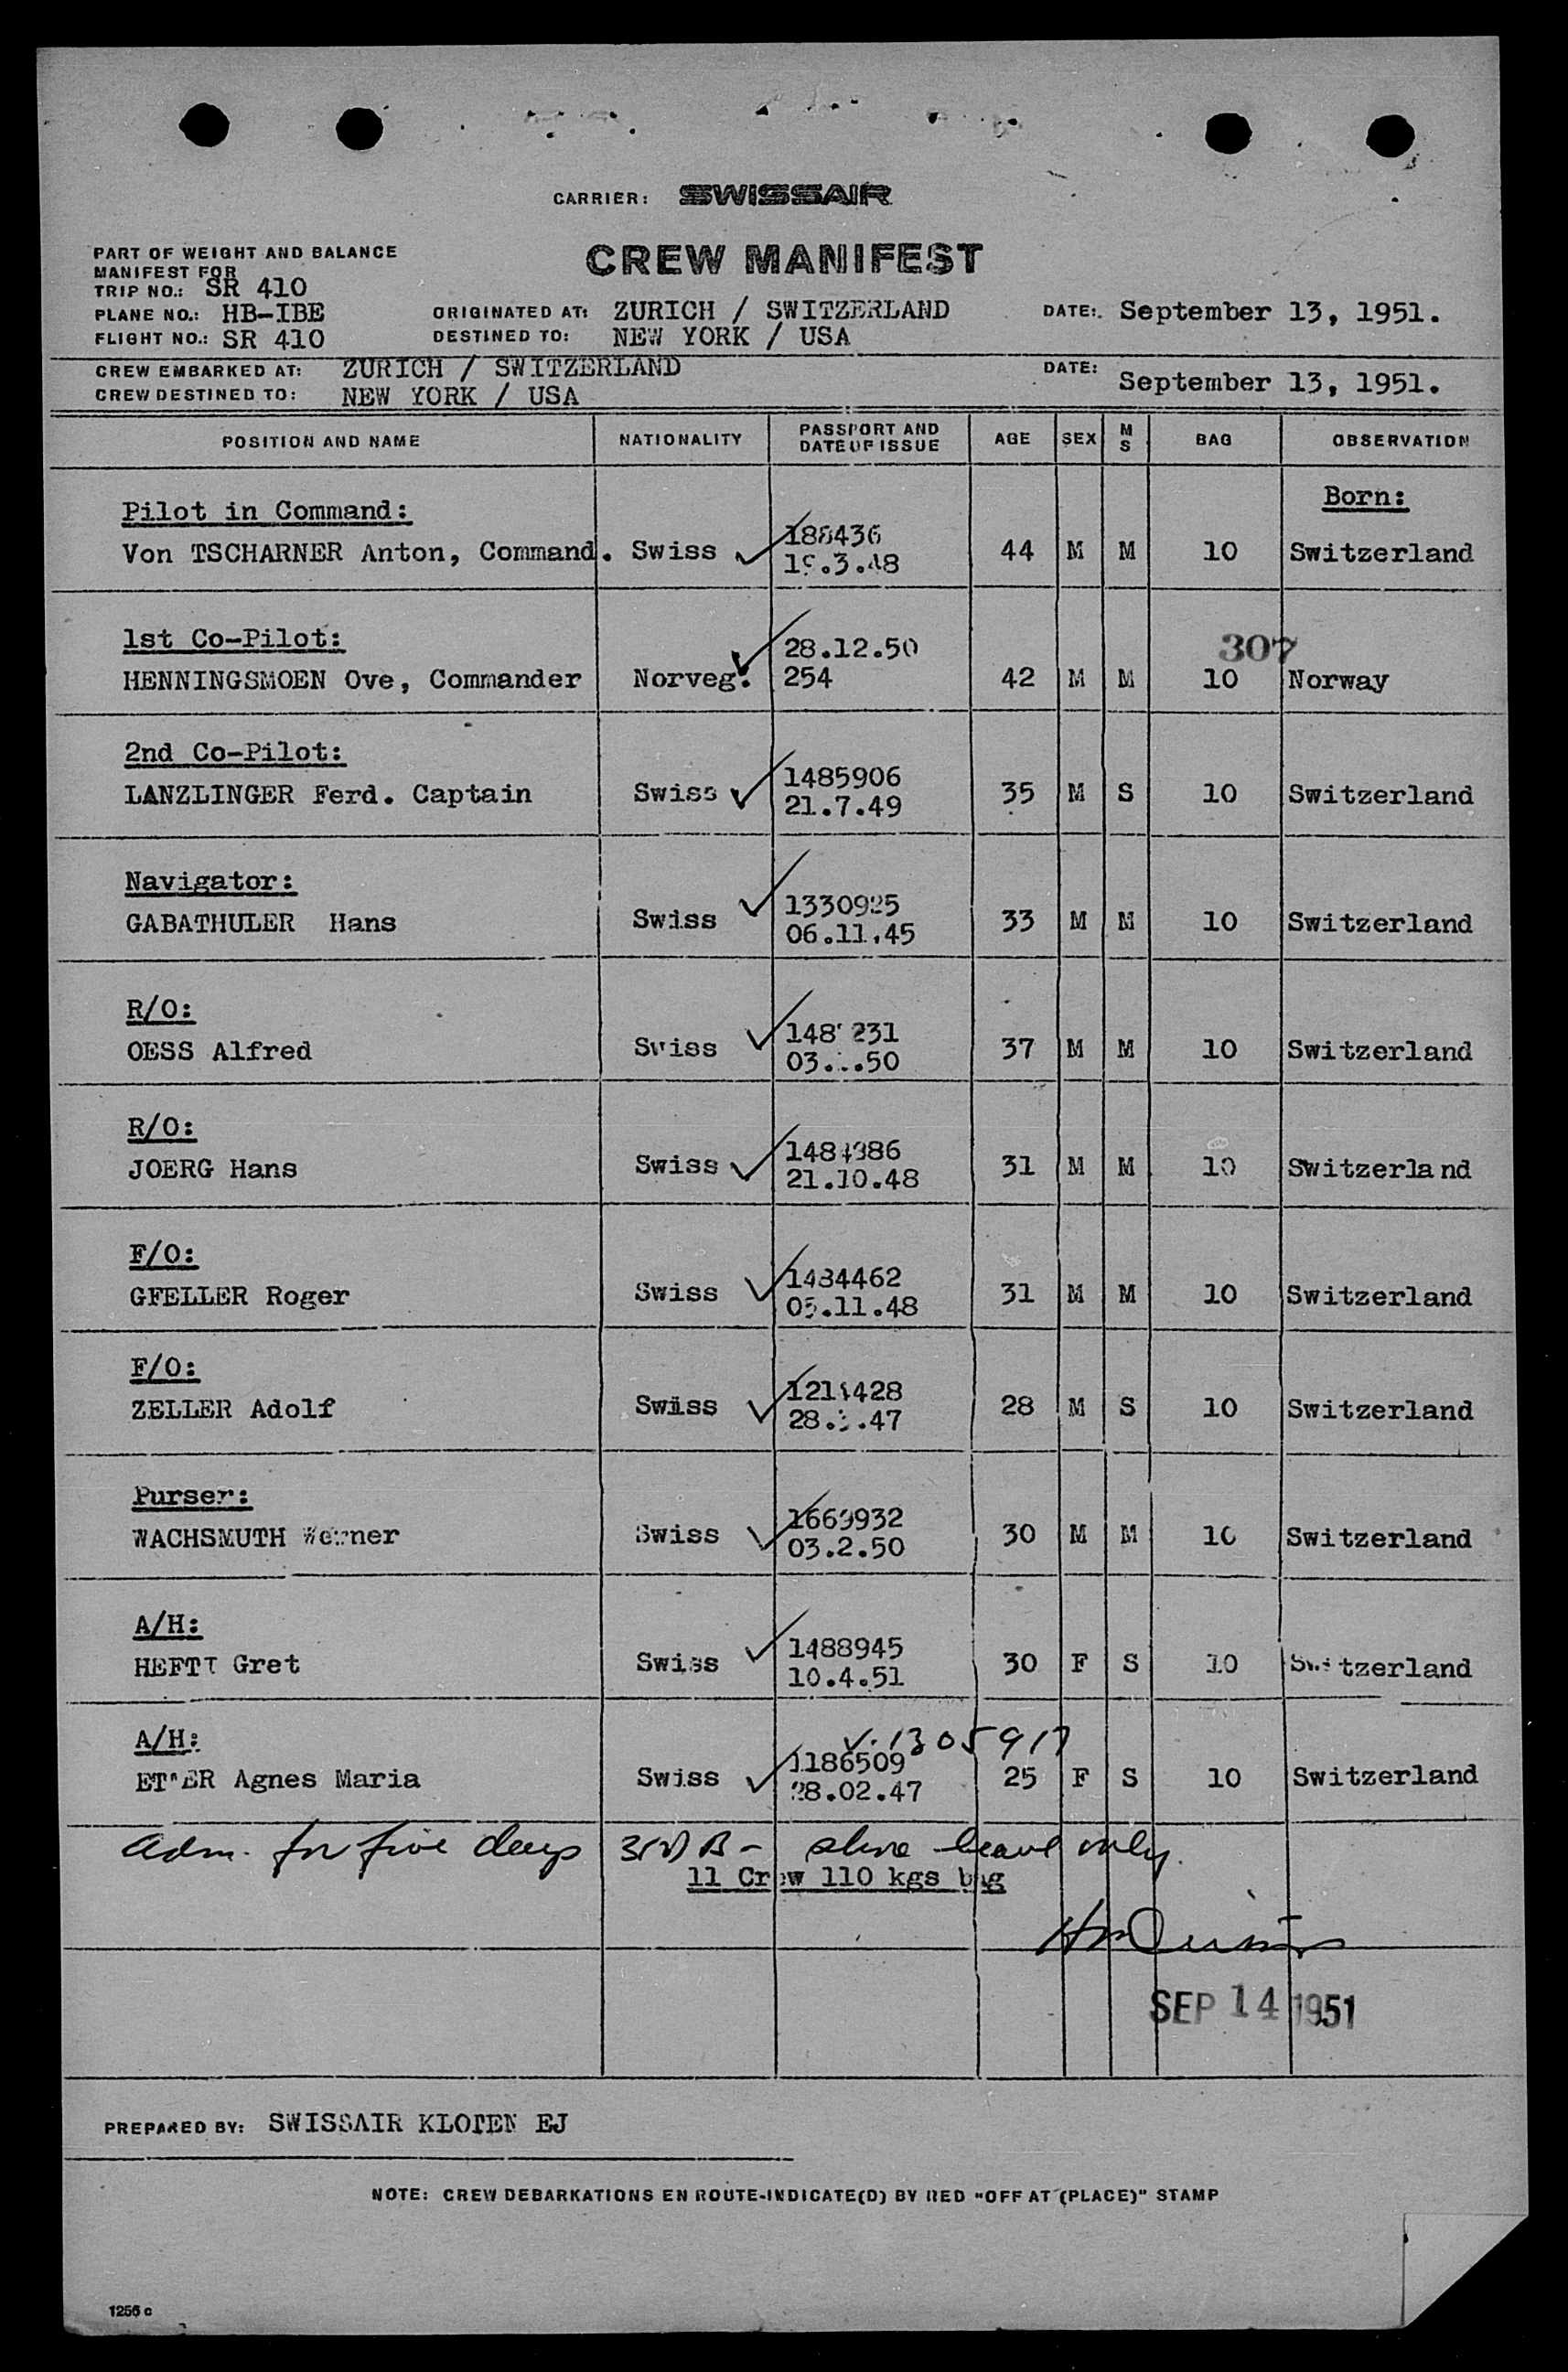 CARRIER: SWISSAIR
CREW MANIFEST
PART OF WEIGHT AND BALANCE
MANIFEST FOR
TRIP NO.: SR 410
PLANE NO.: HB-IBE
FLIGHT NO.: SR 410
ORIGINATED AT: ZURICH / SWITZERLAND
DESTINED TO: NEW YORK / USA
DATE: September 13, 1951.
CREW EMBARKED AT: ZURICH / SWITZERLAND
CREW DESTINED TO: NEW YORK / USA
DATE: September 13, 1951.
POSITION AND NAME NATIONALITY PASSPORT AND DATE OF ISSUE AGE SEX M S BAG OBSERVATION
Born:
Pilot in Command:
188436
Von TSCHARNER Anton, Command. Swiss 44 M M 10 Switzerland
1st Co-Pilot:
28.12.50
307
HENNINGSMOEN Ove, Commander Norveg. 254 42 M M 10 Norway
2nd Co-Pilot:
1485906
LANZLINGER Ferd. Captain Swiss 35 M S 10 Switzerland
21.7.49
Navigator:
1330925
GABATHULER Hans Swiss 33 M M 10 Switzerland
06.11.45
R/O:
OESS Alfred Swiss 37 M M 10 Switzerland
R/O:
JOERG Hans Swiss 31 M M 10 Switzerland
21.10.48
F/O:
1484462
GFELLER Roger Swiss 31 M M 10 Switzerland
F/O:
ZELLER Adolf Swiss 28 M S 10 Switzerland
Purser:
1669932
WACHSMUTH Werner Swiss 30 M M 10 Switzerland
03.2.50
A/H:
1488945
HEFTI Gret Swiss 30 F S 10 Switzerland
10.4.51
A/H:
V. 1305917
1186509
Agnes Maria Swiss 25 F S 10 Switzerland
28.02.47
Adm. for five days shore leave only.
11 Crew 110 kgs bag
SEP 14 1951
PREPARED BY: SWISSAIR KLOTEN EJ
NOTE: CREW DEBARKATIONS EN ROUTE-INDICATE(D) BY RED "OFF AT (PLACE)" STAMP
1256 c